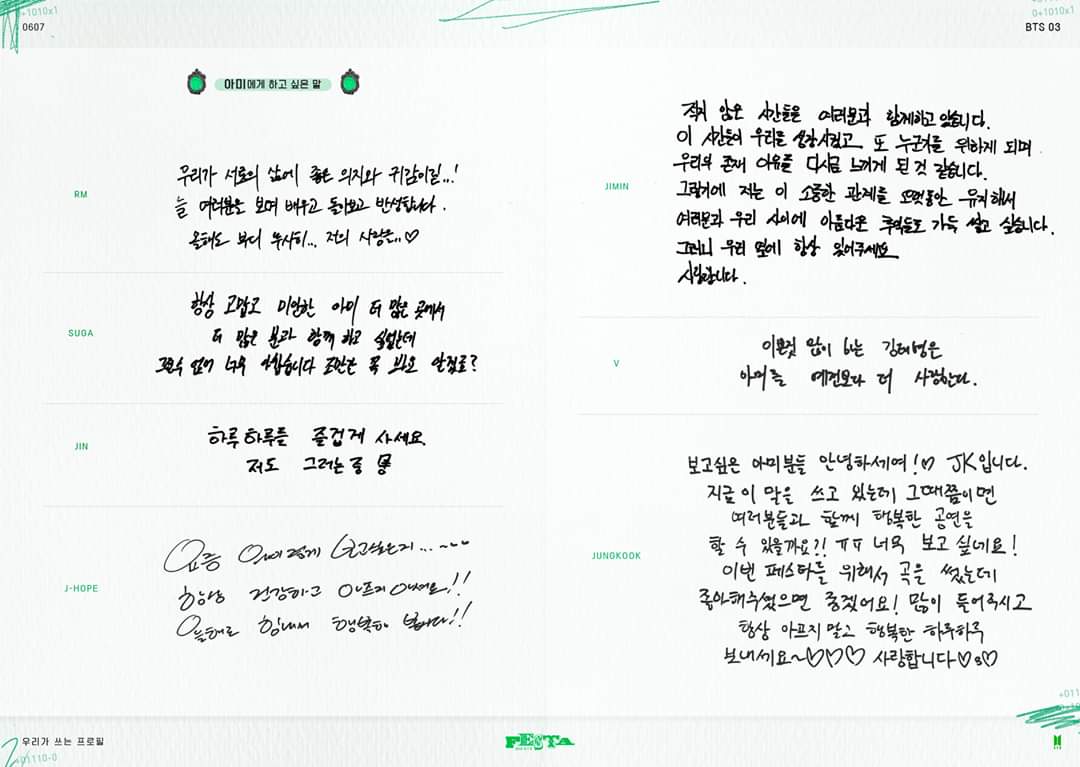 +1010x1
0607
0+1010x1
BTS 03
아미에게 하고 싶은 말
RM
우리가 서로의 삶에 좋은 의지와 귀감이길...!
늘 여러분을 보며 배우고 돌아보고 반성합니다.
올해도 부디 무사히... 저의 사랑은.. ♡
SUGA
항상 고맙고 미안한 아미 더 많은 곳에서
더 많은 분과 함께 하고 싶었는데
그럴수 없어 너무 아쉽습니다 조만간 꼭 봐요 알겠죠?
JIN
하루하루를 즐겁게 사세요.
저도 그러는 중
J-HOPE
요즘 왜이렇게 보고싶은지...~
항상 건강하고 아프지 마세요!!
올해도 힘내서 행복해 봅시다!!
JIMIN
적지 않은 시간들을 여러분과 함께하고 있습니다.
이 시간들이 우리를 성장시켰고 또 누군가를 위하게 되며
우리의 존재 이유를 다시금 느끼게 된 것 같습니다.
그렇기에 저는 이 소중한 관계를 오랫동안 유지해서
여러분과 우리 사이에 아름다운 추억들로 가득 쌓고 싶습니다.
그러니 우리 옆에 항상 있어주세요
사랑합니다.
V
이쁜짓 많이 하는 김태형은
아미를 예전보다 더 사랑한다.
JUNGKOOK
보고싶은 아미분들 안녕하세여!♡ JK입니다.
지금 이 말을 쓰고 있는데 그때쯤이면
여러분들과 함께 행복한 공연을
할 수 있을까요?! ㅠㅠ 너무 보고 싶네요!
이번 페스타를 위해서 곡을 썼는데
좋아해주셨으면 좋겠어요! 많이 들어주시고
항상 아프지 말고 행복한 하루하루
보내세요~♡♡♡ 사랑합니다♡s♡
우리가 쓰는 프로필
+01110-0
FESTA